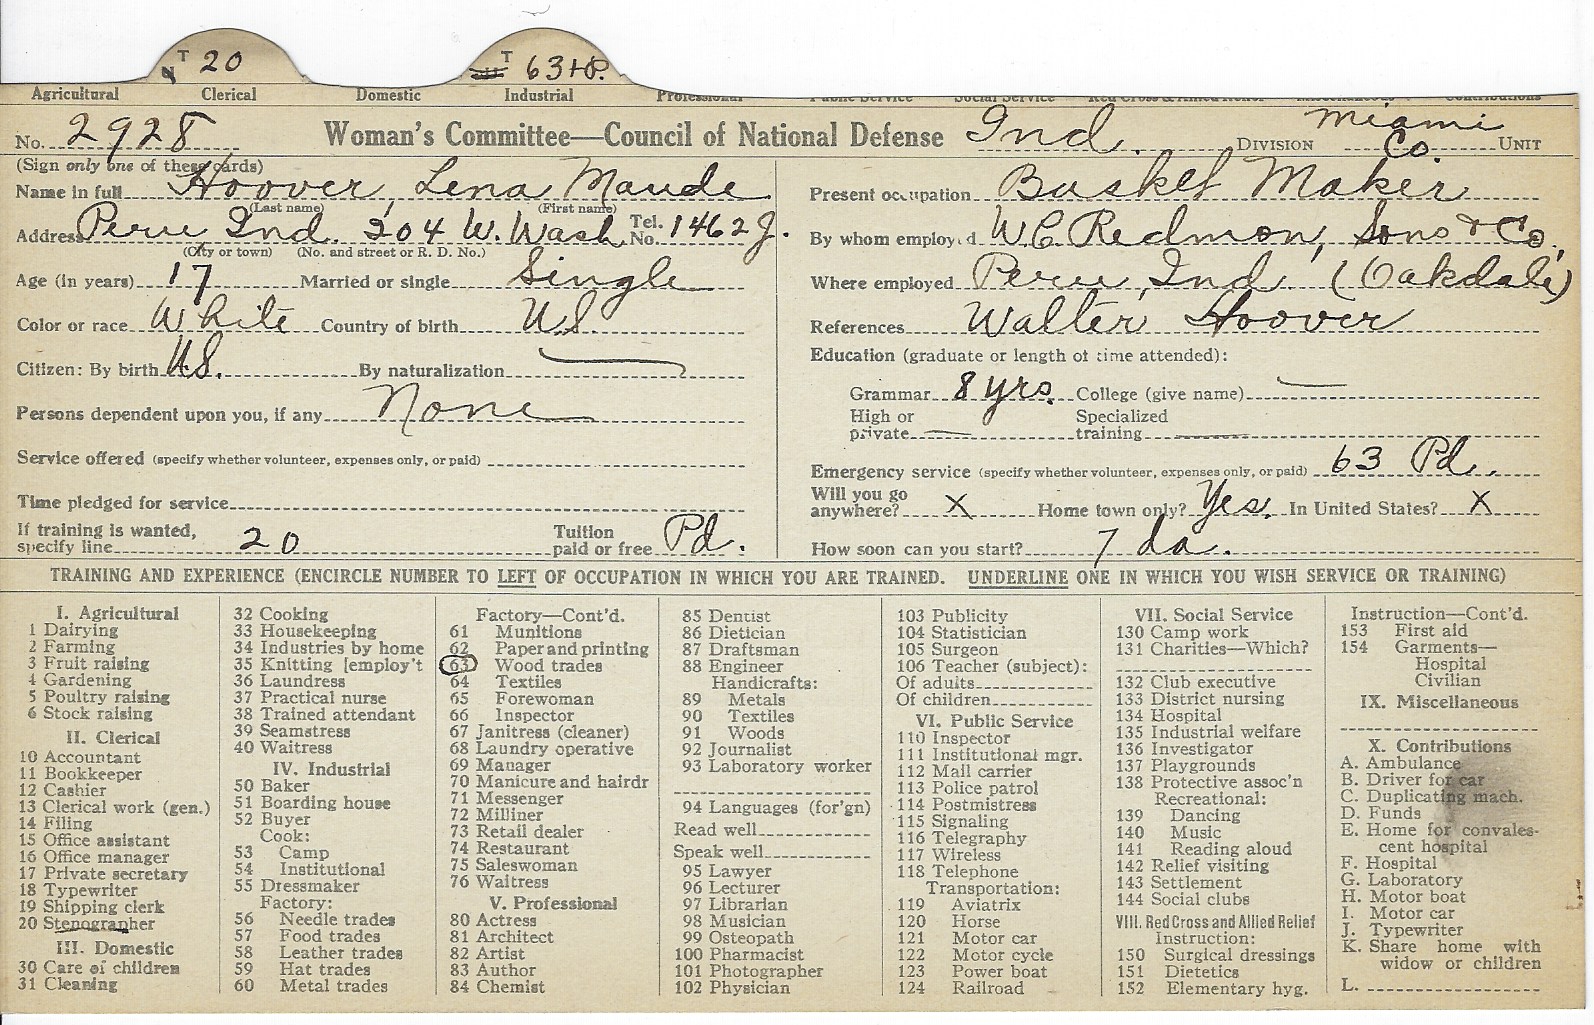 T 20
T 63+P.
Agricultural Clerical Domestic Industrial Professional Public Service Social Service Red Cross & Allied Relief Miscellaneous Contributions
No. 2928 Woman's Committee—Council of National Defense Ind. DIVISION Miami Co. UNIT
(Sign only one of these cards)
Name in full Hoover, Lena Maude
(Last name) (First name)
Address Peru Ind. 204 W. Wash. Tel. No. 1462 J.
(City or town) (No. and street or R. D. No.)
Age (in years) 17 Married or single Single
Color or race White Country of birth U.S.
Citizen: By birth U.S. By naturalization
Persons dependent upon you, if any None
Service offered (specify whether volunteer, expenses only, or paid)
Time pledged for service
If training is wanted, specify line 20 Tuition paid or free Pd.
Present occupation Basket Maker
By whom employed W.C. Redmon, Sons & Co.,
Where employed Peru, Ind. (Oakdale)
References Walter Hoover
Education (graduate or length of time attended):
Grammar 8 yrs. College (give name)
High or private Specialized training
Emergency service (specify whether volunteer, expenses only, or paid) 63 Pd.
Will you go anywhere? X Home town only? Yes. In United States? X
How soon can you start? 7 da.
TRAINING AND EXPERIENCE (ENCIRCLE NUMBER TO LEFT OF OCCUPATION IN WHICH YOU ARE TRAINED. UNDERLINE ONE IN WHICH YOU WISH SERVICE OR TRAINING)
I. Agricultural
1 Dairying
2 Farming
3 Fruit raising
4 Gardening
5 Poultry raising
6 Stock raising
II. Clerical
10 Accountant
11 Bookkeeper
12 Cashier
13 Clerical work (gen.)
14 Filing
15 Office assistant
16 Office manager
17 Private secretary
18 Typewriter
19 Shipping clerk
20 Stenographer
III. Domestic
30 Care of children
31 Cleaning
32 Cooking
33 Housekeeping
34 Industries by home
35 Knitting [employ't
36 Laundress
37 Practical nurse
38 Trained attendant
39 Seamstress
40 Waitress
IV. Industrial
50 Baker
51 Boarding house
52 Buyer
Cook:
53 Camp
54 Institutional
55 Dressmaker
Factory:
56 Needle trades
57 Food trades
58 Leather trades
59 Hat trades
60 Metal trades
Factory—Cont'd.
61 Munitions
62 Paper and printing
63 Wood trades
64 Textiles
65 Forewoman
66 Inspector
67 Janitress (cleaner)
68 Laundry operative
69 Manager
70 Manicure and hairdr
71 Messenger
72 Milliner
73 Retail dealer
74 Restaurant
75 Saleswoman
76 Waitress
V. Professional
80 Actress
81 Architect
82 Artist
83 Author
84 Chemist
85 Dentist
86 Dietician
87 Draftsman
88 Engineer
Handicrafts:
89 Metals
90 Textiles
91 Woods
92 Journalist
93 Laboratory worker
94 Languages (for'gn)
Read well
Speak well
95 Lawyer
96 Lecturer
97 Librarian
98 Musician
99 Osteopath
100 Pharmacist
101 Photographer
102 Physician
103 Publicity
104 Statistician
105 Surgeon
106 Teacher (subject):
Of adults
Of children
VI. Public Service
110 Inspector
111 Institutional mgr.
112 Mail carrier
113 Police patrol
114 Postmistress
115 Signaling
116 Telegraphy
117 Wireless
118 Telephone
Transportation:
119 Aviatrix
120 Horse
121 Motor car
122 Motor cycle
123 Power boat
124 Railroad
VII. Social Service
130 Camp work
131 Charities—Which?
132 Club executive
133 District nursing
134 Hospital
135 Industrial welfare
136 Investigator
137 Playgrounds
138 Protective assoc'n
Recreational:
139 Dancing
140 Music
141 Reading aloud
142 Relief visiting
143 Settlement
144 Social clubs
VIII. Red Cross and Allied Relief
Instruction:
150 Surgical dressings
151 Dietetics
152 Elementary hyg.
Instruction—Cont'd.
153 First aid
154 Garments—
Hospital
Civilian
IX. Miscellaneous
X. Contributions
A. Ambulance
B. Driver for car
C. Duplicating mach.
D. Funds
E. Home for convales-
cent hospital
F. Hospital
G. Laboratory
H. Motor boat
I. Motor car
J. Typewriter
K. Share home with
widow or children
L.